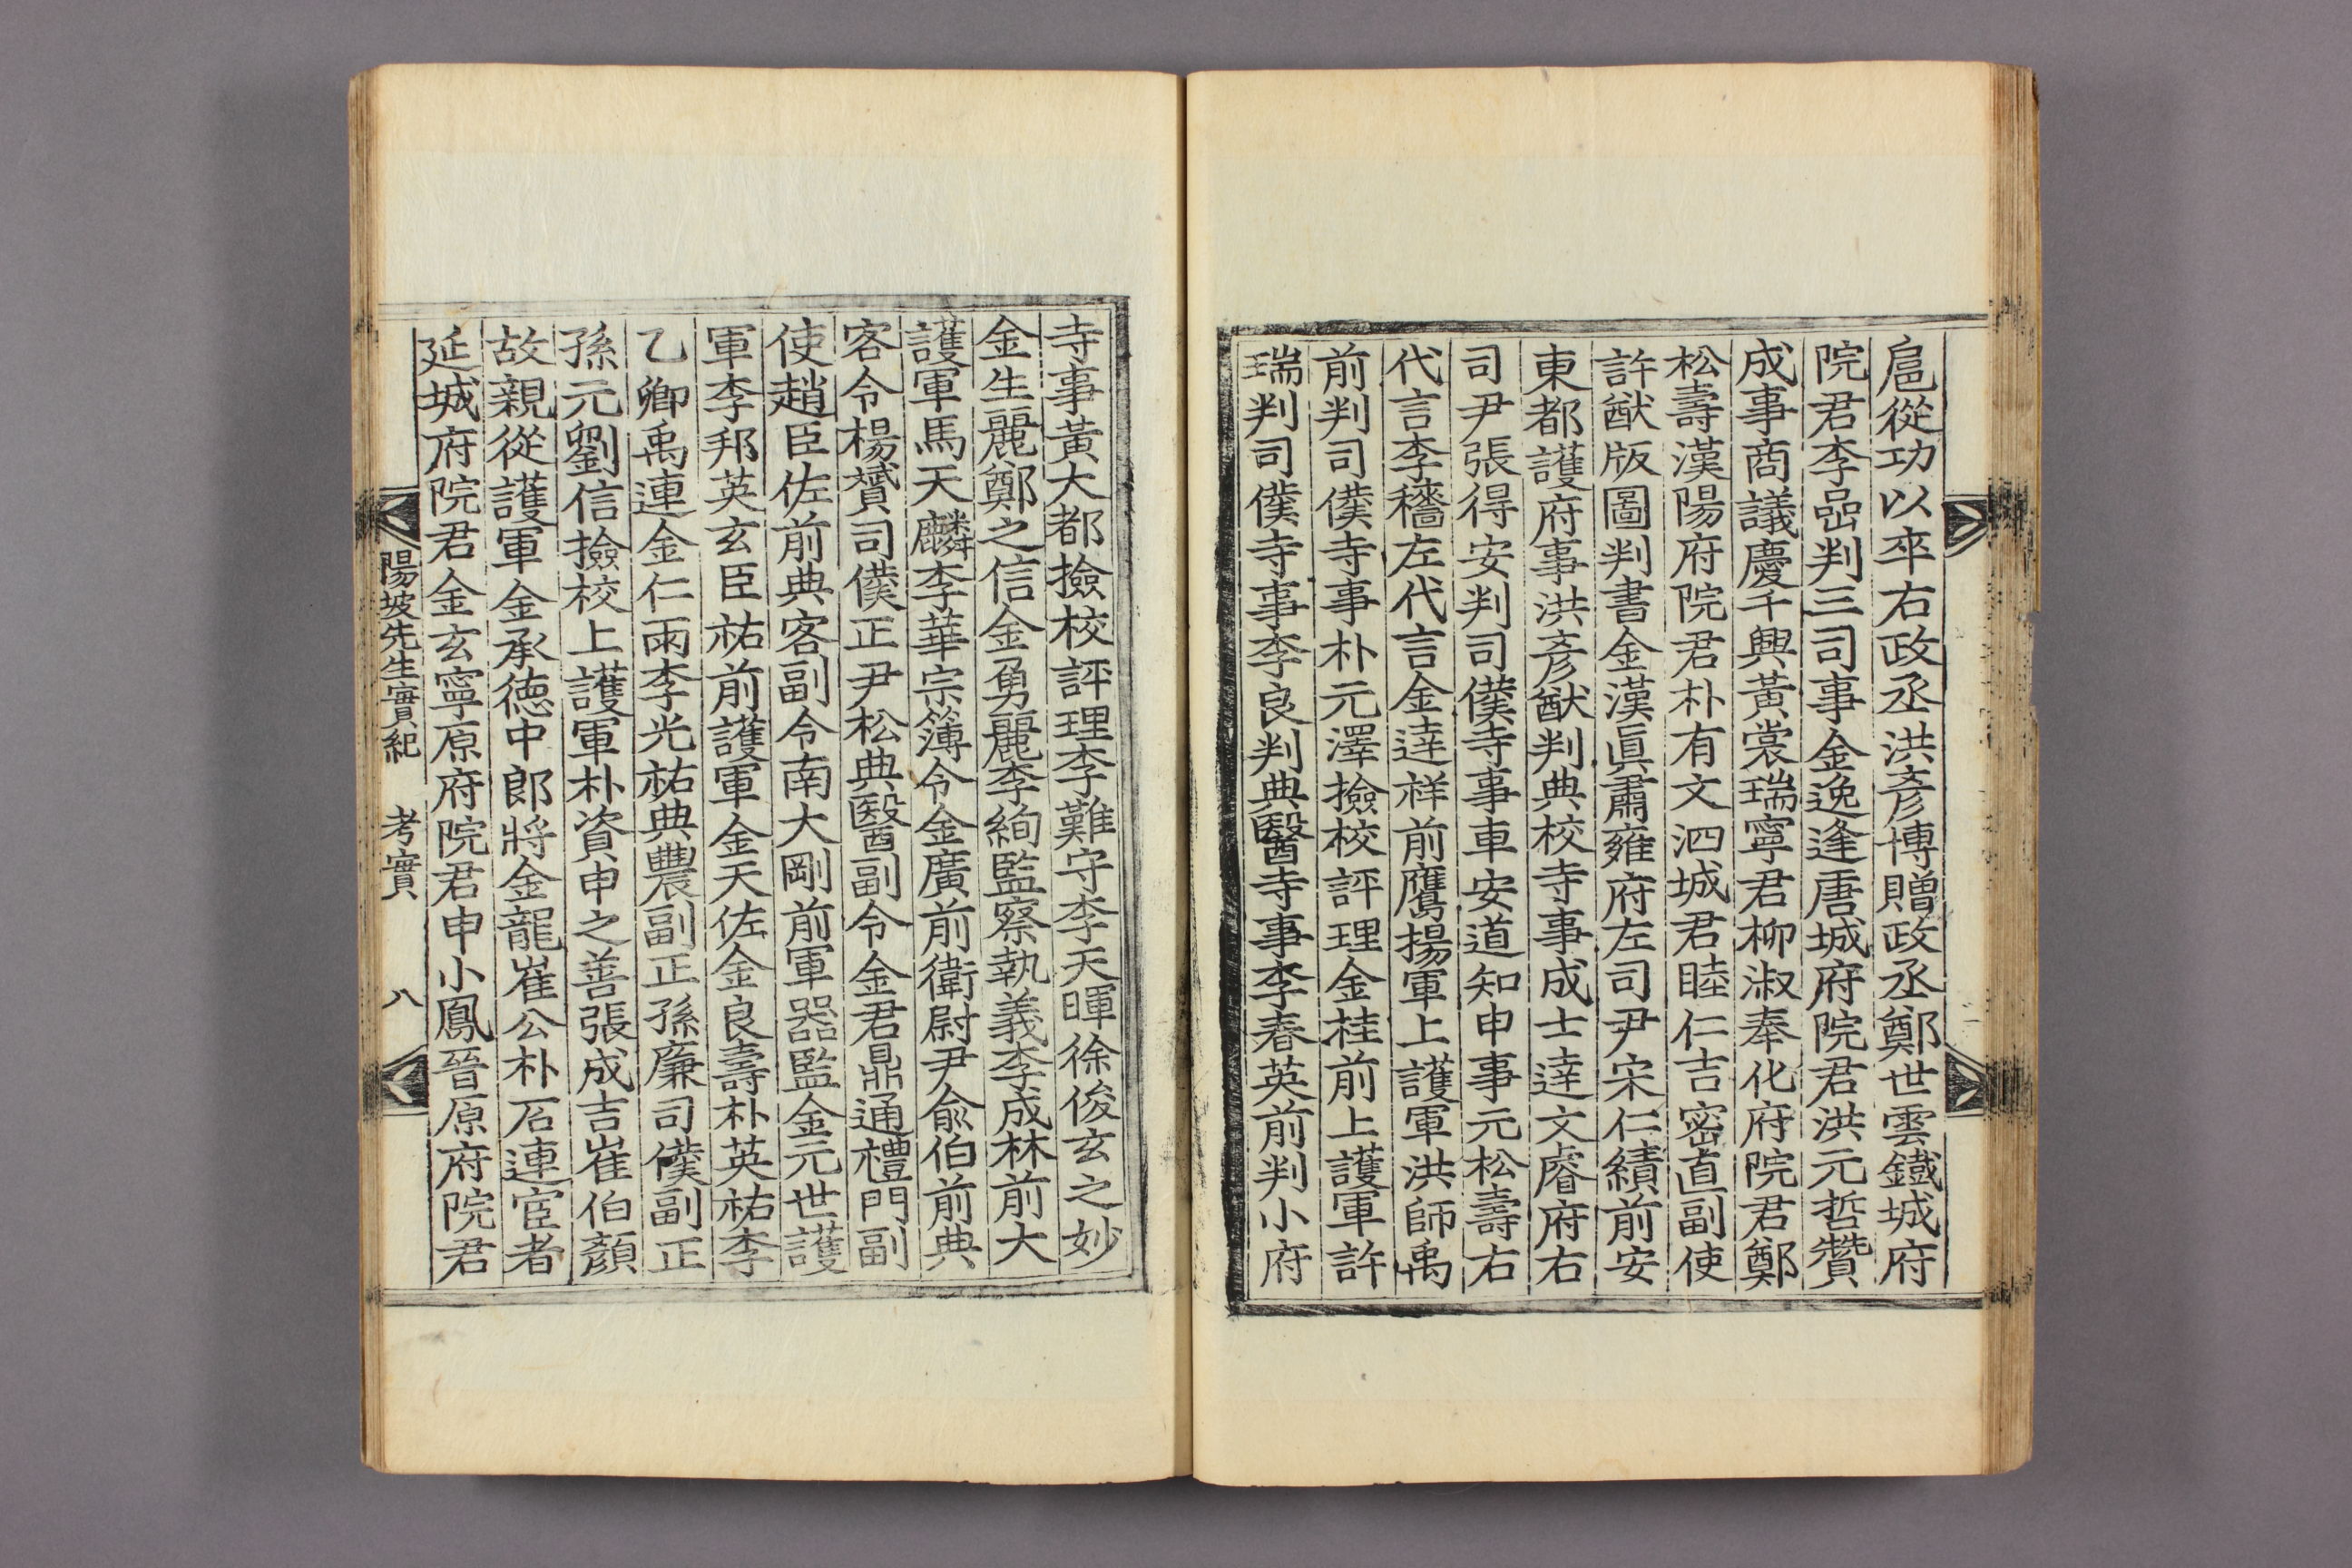 扈從功以卒右政丞洪彥博贈政丞鄭世雲鐵城府
院君李嵒判三司事金逸逢唐城府院君洪元哲贊
成事商議慶千興黃裳瑞寧君柳淑奉化府院君鄭
松壽漢陽府院君朴有文泗城君睦仁吉密直副使
許猷版圖判書金漢眞肅雍府左司尹宋仁績前安
東都護府事洪彥猷判典校寺事成士達文睿府右
司尹張得安判司僕寺事車安道知申事元松壽右
代言李穡左代言金達祥前鷹揚軍上護軍洪師禹
前判司僕寺事朴元澤撿校評理金桂前上護軍許
瑞判司僕寺事李良判典醫寺事李春英前判小府
寺事黃大都撿校評理李難守李天暉徐俊玄之妙
金生麗鄭之信金勇麗李絢監察執義李成林前大
護軍馬天麟李華宗簿令金廣前衛尉尹兪伯前典
客令楊贇司僕正尹松典醫副令金君鼎通禮門副
使趙臣佐前典客副令南大剛前軍器監金元世護
軍李邦英玄臣祐前護軍金天佐金良壽朴英祐李
乙卿禹連金仁雨李光祐典農副正孫廉司僕副正
孫元劉信撿校上護軍朴資申之善張成吉崔伯顏
故親從護軍金承德中郎將金龍崔公朴石連宦者
延城府院君金玄寧原府院君申小鳳晉原府院君
陽坡先生實紀 考實 八